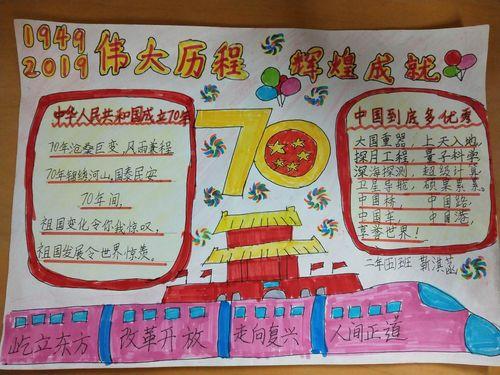 1949
2019
伟大历程 辉煌成就
70
中华人民共和国成立70年
70年沧桑巨变,风雨兼程
70年锦绣河山,国泰民安
70年间,
祖国变化令你我惊叹,
祖国发展令世界惊羡。
中国到底多优秀
大国重器, 上天入地,
探月工程, 量子科学
深海探测, 超级计算
卫星导航, 硕果累累。
中国桥, 中国路,
中国车, 中国港,
享誉世界!
二年四班 靳淇菡
屹立东方 改革开放 走向复兴 人间正道